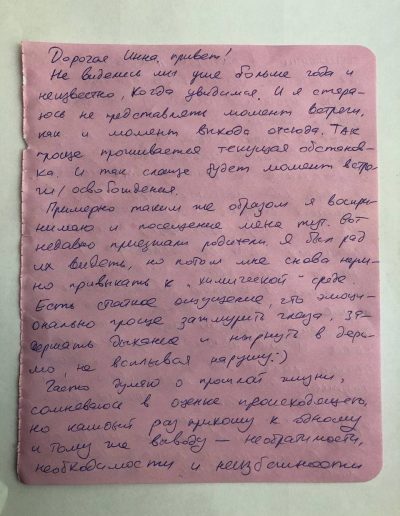 Дорогая Инна, привет!
Не виделись мы уже больше года и
неизвестно, когда увидимся. И я стара-
юсь не представлять момент встречи,
как и момент выхода отсюда. Так
проще проживается текущая обстанов-
ка. И так слаще будет момент встре-
чи/освобождения.
Примерно таким же образом я воспри-
нимаю и посещение меня тут. Вот
недавно приезжали родители. Я был рад
их видеть, но потом мне снова нуж-
но привыкать к "химической" среде.
Есть стойкое ощущение, что эмоци-
онально проще зажмурить глаза, за-
держать дыхание и нырнуть в дерь-
мо, не всплывая наружу :)
Часто думаю о прошлой жизни,
сомневаюсь в оценке происходящего,
но каждый раз прихожу к одному
и тому же выводу — необратимости,
необходимости и неизбежности